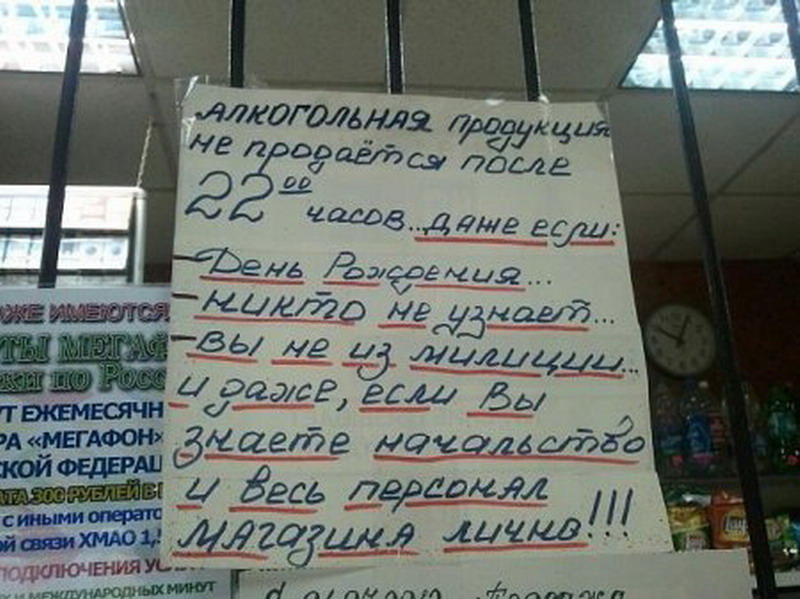 АЛКОГОЛЬНАЯ продукция
не продаётся после
22⁰⁰ часов...даже если:
- День Рождения...
- никто не узнает...
- вы не из милиции...
и даже, если Вы
знаете начальство
и весь персонал
магазина лично!!!
ИМЕЮТСЯ
МЕГАФ
по
ЕЖЕМЕСЯЧН
«МЕГАФОН»
СКОЙ ФЕДЕРАЦ
300 РУБЛЕЙ В
с иными операто
связи ХМАО 1,5
ПОДКЛЮЧЕНИЯ УСЛ
И МЕЖДУНАРОДНЫХ МИНУТ